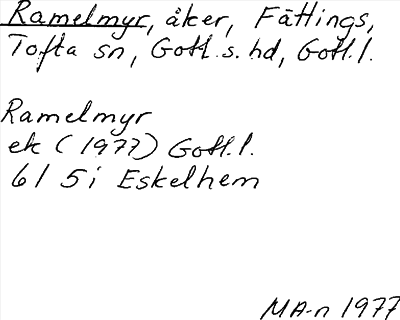 Ramelmyr, åker, Fättings,
Tofta sn, Gotl. s. hd, Gotl. l.
Ramelmyr
ek (1977) Gotl. l.
6I 5i Eskelhem
MA-n 1977